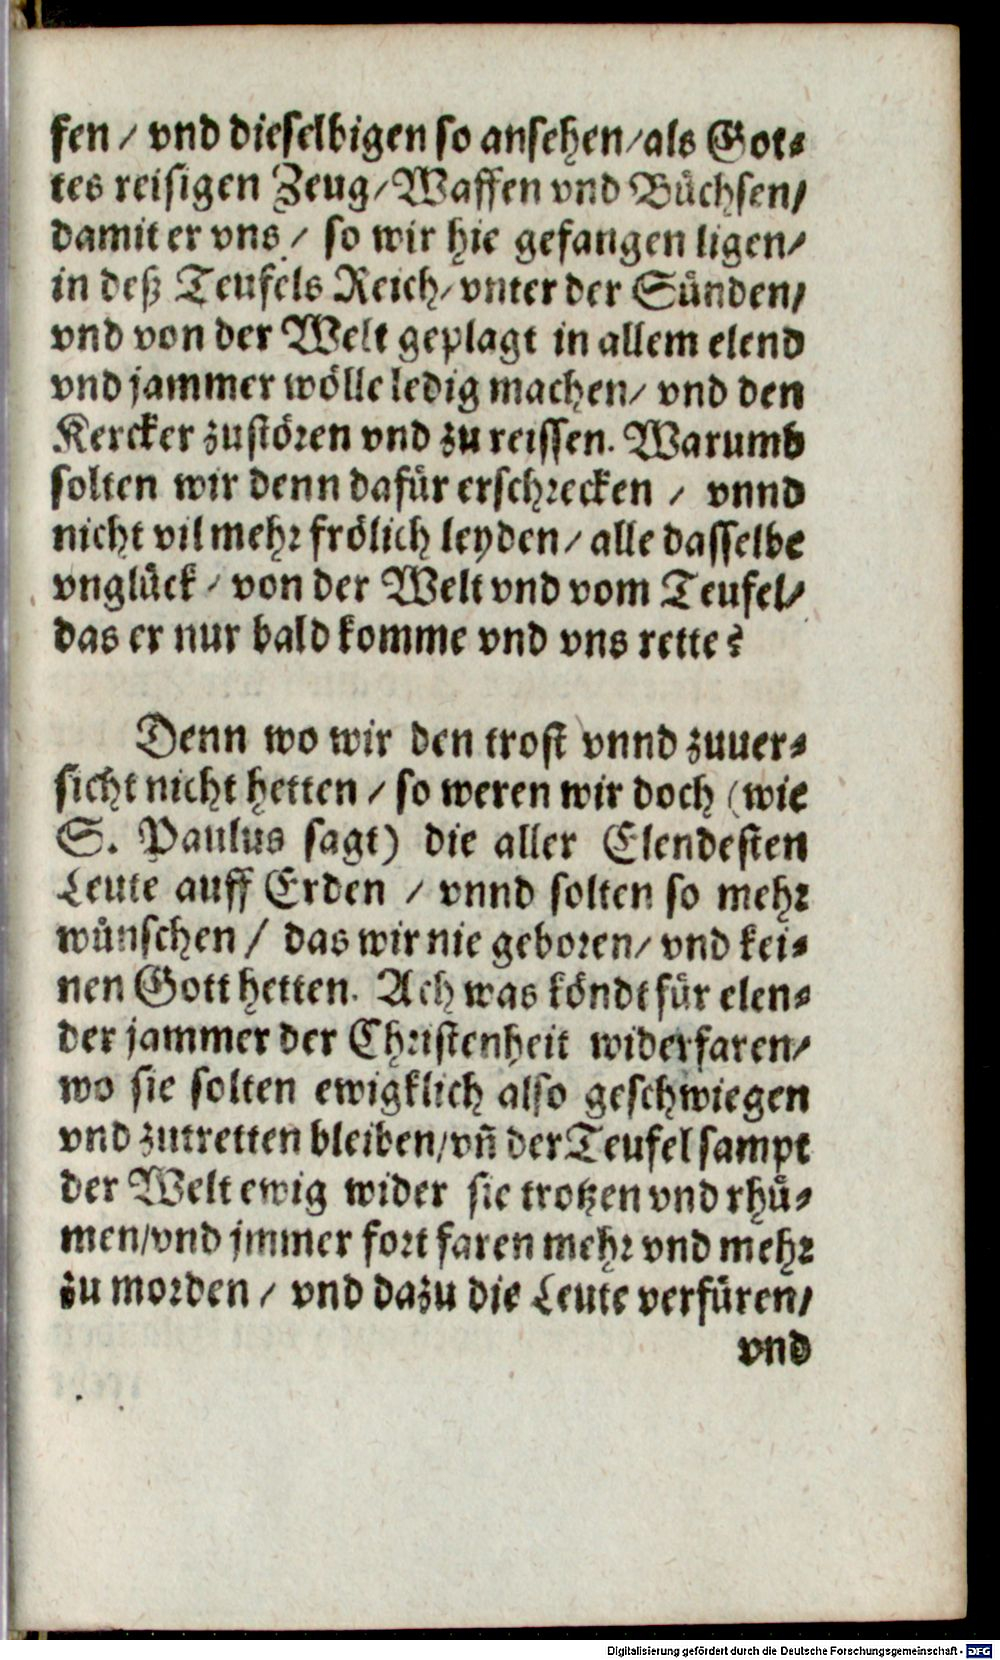 sen / vnd dieselbigen so ansehen / als Got-
tes reisigen Zeug / Waffen vnd Büchsen /
damit er vns / so wir hie gefangen ligen /
in deß Teufels Reich / vnter der Sünden /
vnd von der Welt geplagt in allem elend
vnd jammer wölle ledig machen / vnd den
Kercker zustören vnd zu reissen. Warumb
solten wir denn dafür erschrecken / vnnd
nicht vil mehr frölich leyden / alle dasselbe
vnglück / von der Welt vnd vom Teufel /
das er nur bald komme vnd vns rette?
Denn wo wir den trost vnnd zuuer-
sicht nicht hetten / so weren wir doch (wie
S. Paulus sagt) die aller Elendesten
Leute auff Erden / vnnd solten so mehr
wünschen / das wir nie geboren / vnd kei-
nen Gott hetten. Ach was köndt für elen-
der jammer der Christenheit widerfaren /
wo sie solten ewigklich also geschwiegen
vnd zutretten bleiben / vñ der Teufel sampt
der Welt ewig wider sie trotzen vnd rhü-
men / vnd jmmer fort faren mehr vnd mehr
zu morden / vnd dazu die Leute verfüren /
vnd
Digitalisierung gefördert durch die Deutsche Forschungsgemeinschaft - DFG